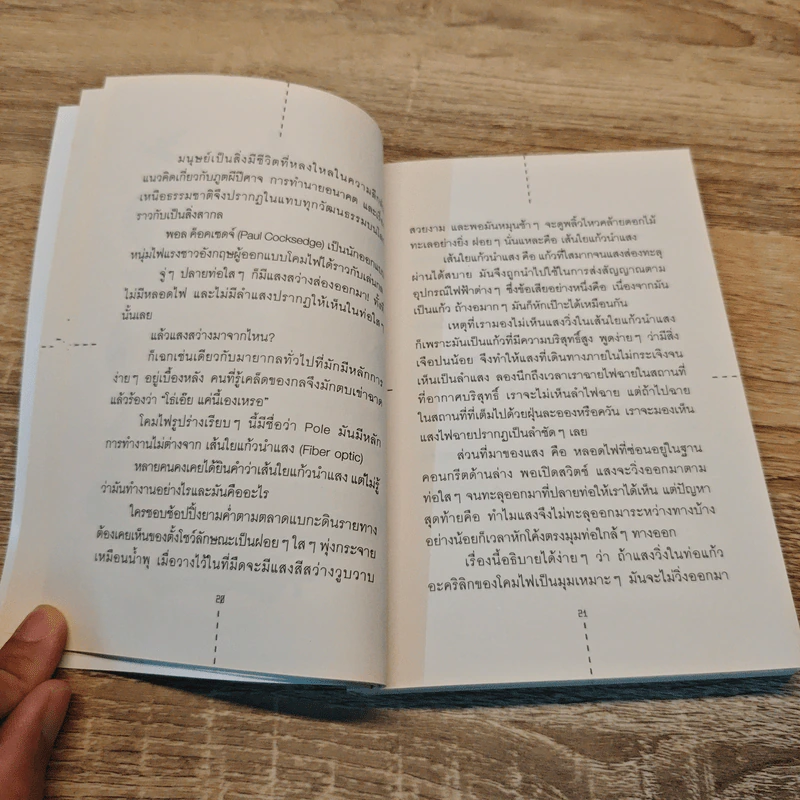 มนุษย์เป็นสิ่งมีชีวิตที่หลงใหลในความลึกลับ
แนวคิดเกี่ยวกับภูตผีปีศาจ การทำนายอนาคต และ
เหนือธรรมชาติจึงปรากฏในแทบทุกวัฒนธรรมบน
ราวกับเป็นสิ่งสากล
พอล ค็อคเซดจ์ (Paul Cocksedge) เป็นนักออกแบบ
หนุ่มไฟแรงชาวอังกฤษผู้ออกแบบโคมไฟได้ราวกับเล่นกล
จู่ๆ ปลายท่อใสๆ ก็มีแสงสว่างส่องออกมา! ทั้งที่
ไม่มีหลอดไฟ และไม่มีลำแสงปรากฏให้เห็นในท่อใสๆ
นั้นเลย
แล้วแสงสว่างมาจากไหน?
ก็เฉกเช่นเดียวกับมายากลทั่วไปที่มักมีหลักการ
ง่ายๆ อยู่เบื้องหลัง คนที่รู้เคล็ดของกลจึงมักตบเข่าฉาด
แล้วร้องว่า “โธ่เอ๊ย แค่นี้เองเหรอ”
โคมไฟรูปร่างเรียบๆ นี้มีชื่อว่า Pole มันมีหลัก
การทำงานไม่ต่างจาก เส้นใยแก้วนำแสง (Fiber optic)
หลายคนคงเคยได้ยินคำว่าเส้นใยแก้วนำแสง แต่ไม่รู้
ว่ามันทำงานอย่างไรและมันคืออะไร
ใครชอบช้อปปิ้งยามค่ำตามตลาดแบกะดินรายทาง
ต้องเคยเห็นของตั้งโชว์ลักษณะเป็นฝอยๆ ใสๆ พุ่งกระจาย
เหมือนน้ำพุ เมื่อวางไว้ในที่มืดจะมีแสงสีสว่างวูบวาบ
20
สวยงาม และพอมันหมุนช้าๆ จะดูพลิ้วไหวคล้ายดอกไม้
ทะเลอย่างยิ่ง ฝอยๆ นั่นแหละคือ เส้นใยแก้วนำแสง
เส้นใยแก้วนำแสง คือ แก้วที่ใสมากจนแสงส่องทะลุ
ผ่านได้สบาย มันจึงถูกนำไปใช้ในการส่งสัญญาณตาม
อุปกรณ์ไฟฟ้าต่างๆ ซึ่งข้อเสียอย่างหนึ่งคือ เนื่องจากมัน
เป็นแก้ว ถ้างอมากๆ มันก็หักเป๊าะได้เหมือนกัน
เหตุที่เรามองไม่เห็นแสงวิ่งในเส้นใยแก้วนำแสง
ก็เพราะมันเป็นแก้วที่มีความบริสุทธิ์สูง พูดง่ายๆ ว่ามีสิ่ง
เจือปนน้อย จึงทำให้แสงที่เดินทางภายในไม่กระเจิงจน
เห็นเป็นลำแสง ลองนึกถึงเวลาเราฉายไฟฉายในสถานที่
ที่อากาศบริสุทธิ์ เราจะไม่เห็นลำไฟฉาย แต่ถ้าไปฉาย
ในสถานที่ที่เต็มไปด้วยฝุ่นละอองหรือควัน เราจะมองเห็น
แสงไฟฉายปรากฏเป็นลำชัดๆ เลย
ส่วนที่มาของแสง คือ หลอดไฟที่ซ่อนอยู่ในฐาน
คอนกรีตด้านล่าง พอเปิดสวิตซ์ แสงจะวิ่งออกมาตาม
ท่อใสๆ จนทะลุออกมาที่ปลายท่อให้เราได้เห็น แต่ปัญหา
สุดท้ายคือ ทำไมแสงจึงไม่ทะลุออกมาระหว่างทางบ้าง
อย่างน้อยก็เวลาหักโค้งตรงมุมท่อใกล้ๆ ทางออก
เรื่องนี้อธิบายได้ง่ายๆ ว่า ถ้าแสงวิ่งในท่อแก้ว
อะคริลิกของโคมไฟเป็นมุมเหมาะๆ มันจะไม่วิ่งออกมา
21